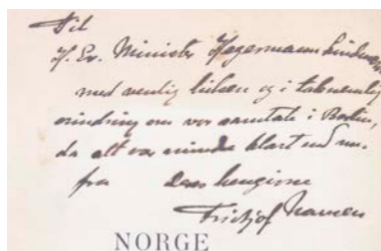 Til
H. Ex. Minister Hagermann Lindencrone
med venlig hilsen og i taknemlig
erindring om vor samtale i Berlin,
da alt var mindre klart end nu.
fra Deres hengivne
Fridtjof Nansen
NORGE